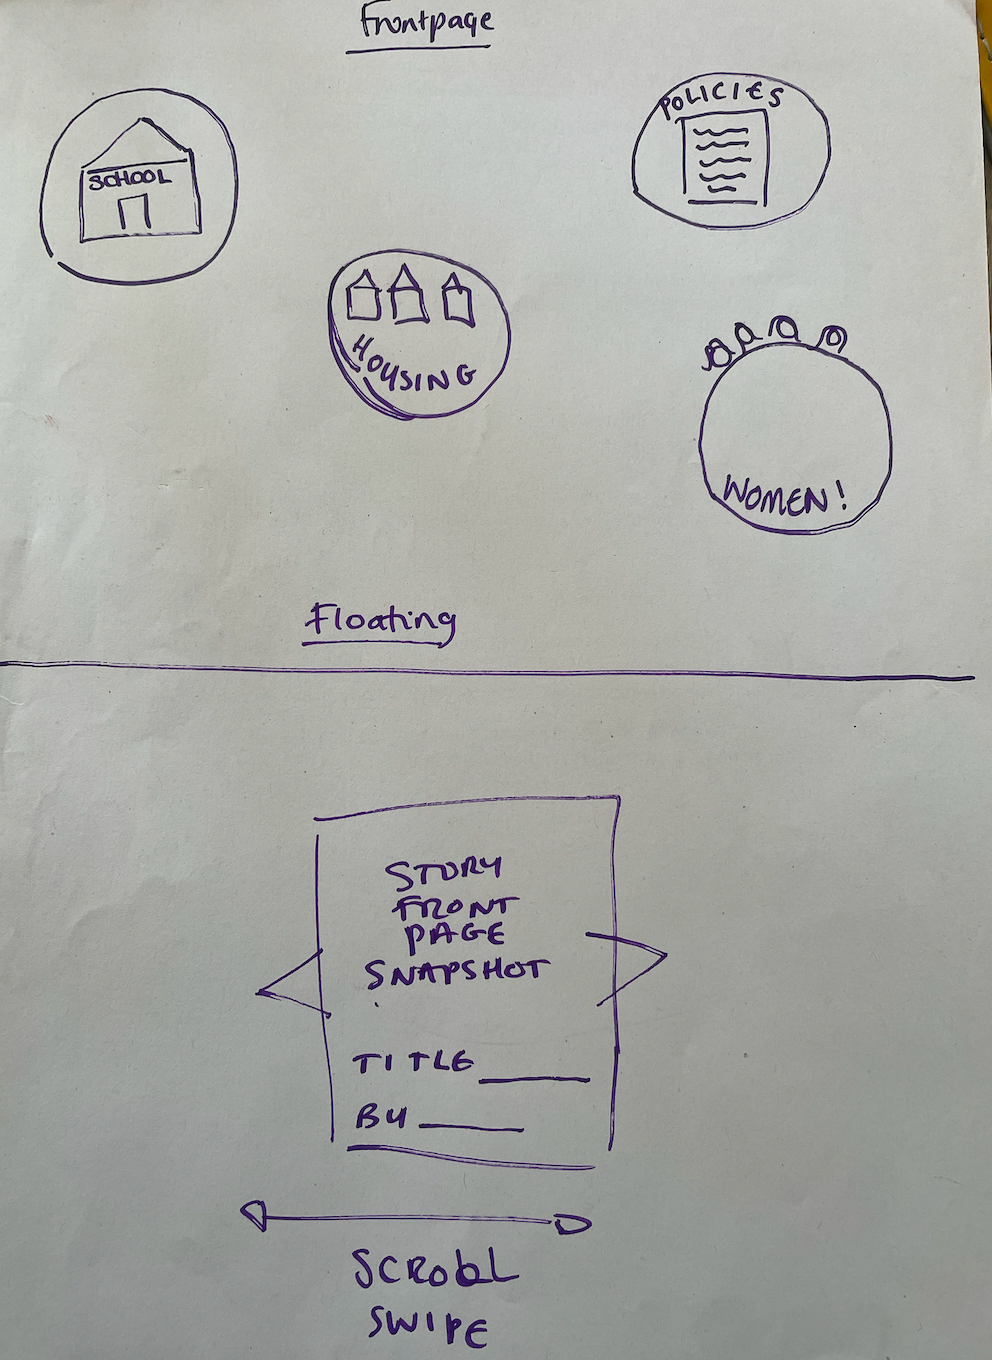 Frontpage
SCHOOL
POLICIES
HOUSING
WOMEN!
Floating
STORY
FRONT
PAGE
SNAPSHOT
TITLE
BY
SCROLL
SWIPE